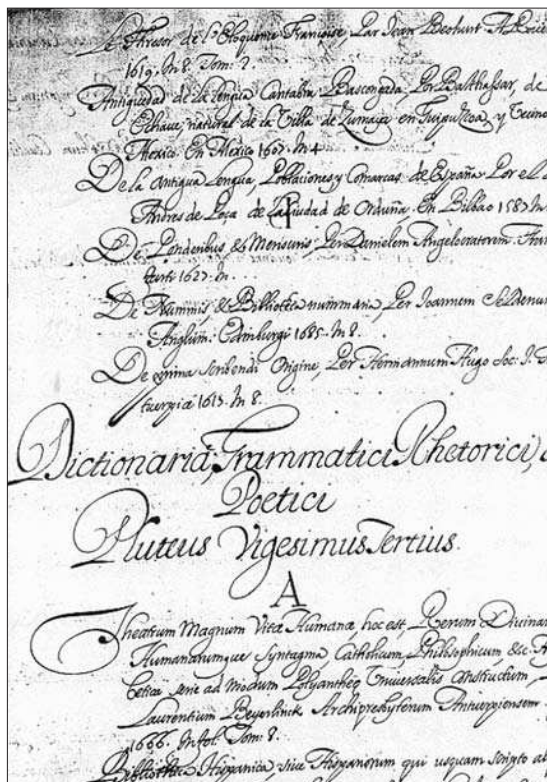 Le Thresor de l'Eloquence Françoise, Par Jean
1619. In 8. Tom: 2.
Antiguedad de la lengua Cantabra Bascongada, Por Balthassar, de
Echave, natural de la Villa de Zumaja en Guipuscoa, y Vecino
Mexico. En Mexico 1607. In 4
De la antigua Lengua, Poblaciones y Comarcas de España Por el
Andres de Poça de la Ciudad de Orduña. En Bilbao 1587 In
De Ponderibus, & Mensuris, Per Danielem Angelocratorem.
furti 1627. In
De Nummis & Biblioteca nummaria, Per Joannem
Anglum. Edinburgi 1685. In 8.
De prima scribendi Origine, Per Hermannum Hugo Soc. J.
tuerpiæ 1613. In 8.
Dictionaria, Grammatici, Rhetorici,
Poetici
Pluteus Vigesimus Tertius.
A
Theatrum Magnum Vitæ Humanæ, hoc est, Rerum Divina
Humanarumque Syntagma, Catholicum, Philosophicum, &c.
betica serie ad modum Polyantheæ Universalis constructum,
Laurentium Beyerlinck Archipresbyterum Antuerpiensem
1666. In fol. Tom: 8.
Biblioteca Hispanica, sive Hispanorum qui usquam scripto